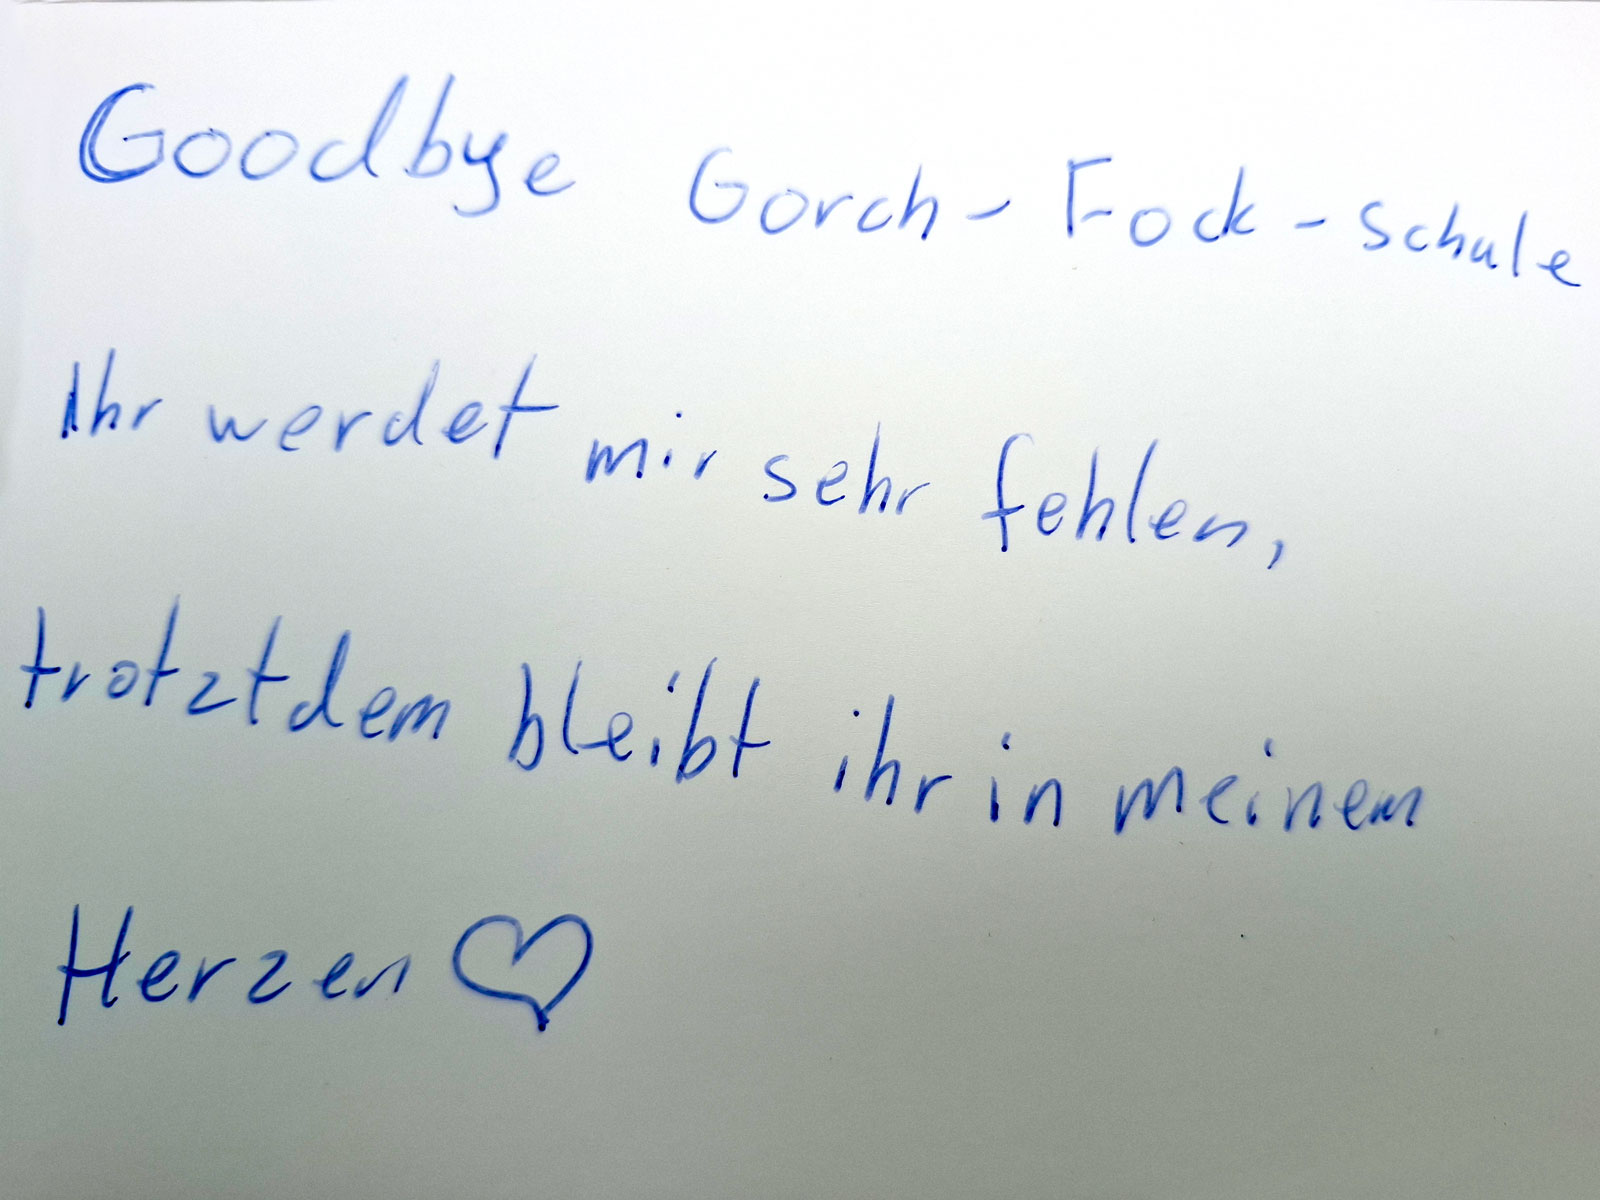 Goodbye Gorch-Fock-Schule
Ihr werdet mir sehr fehlen,
trotztdem bleibt ihr in meinem
Herzen ♡